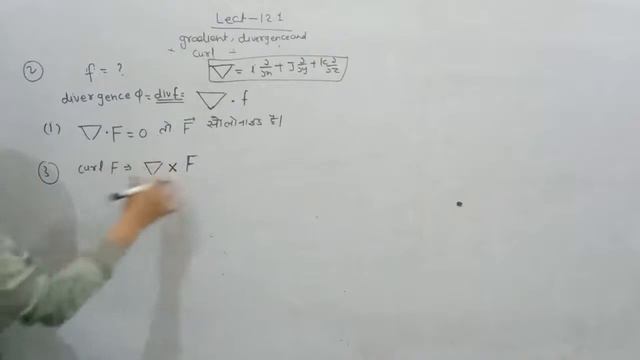 Lect-121
gradient, divergence and
curl
② f = ?
▽ = i ∂/∂x + J ∂/∂y + k ∂/∂z
divergence φ = divf = ▽ . f
(1) ▽ . F = 0 तो F⃗ सोलोनाइड है।
③ curl F ⇒ ▽ × F